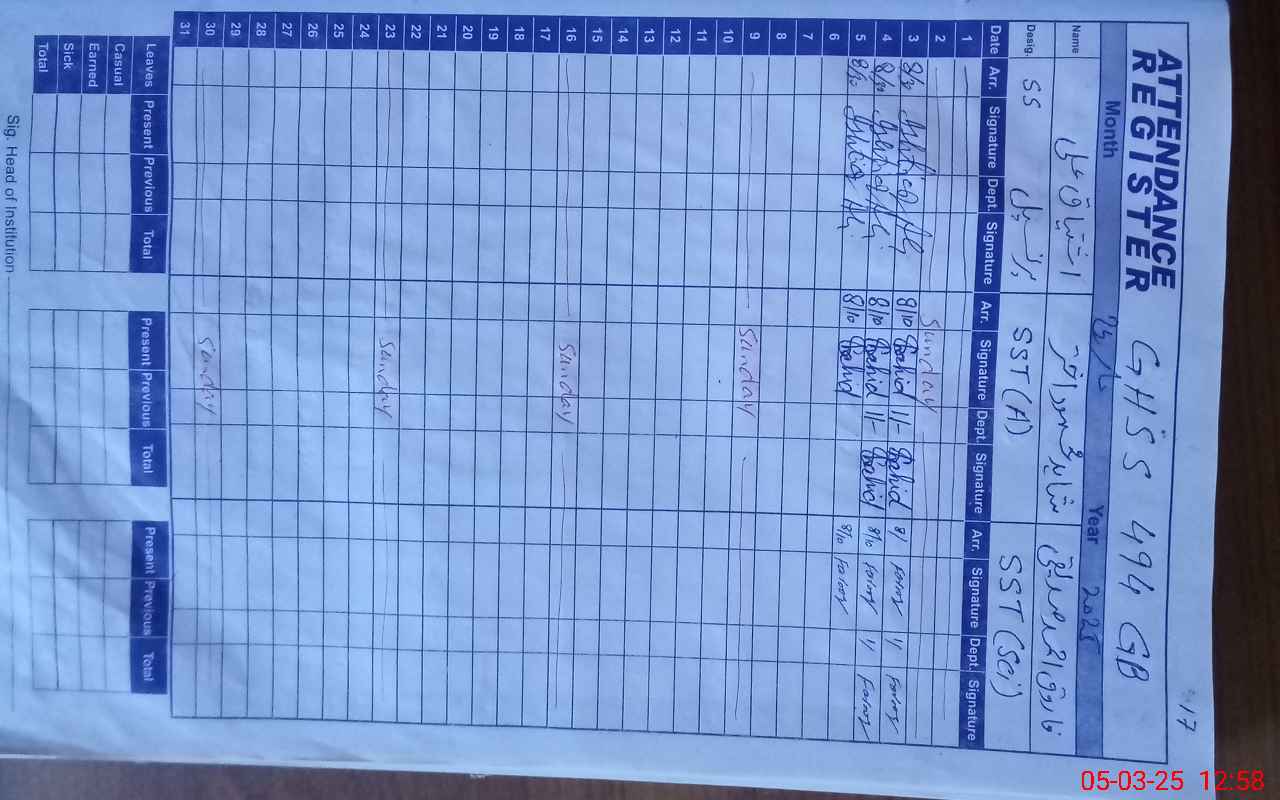 ATTENDANCE REGISTER GHSS 494 GB
17
Month مارچ Year 2025
Name اشتیاق علی شاہد محمود فاروق احمد
Desig. SS پرنسپل SST (A) SST (Sci)
Date Arr. Signature Dept. Signature Arr. Signature Dept. Signature Arr. Signature Dept. Signature
1
2 Sunday
3 8/10 Ishtiaq Ali 8/10 Shahid 11/- Shahid 8/ Farooq 11 Farooq
4 8/10 Ishtiaq Ali 8/10 Shahid 11/- Shahid 8/10 Farooq 11 Farooq
5 8/10 Ishtiaq Ali 8/10 Shahid 8/10 Farooq
6
7
8
9 Sunday
10
11
12
13
14
15
16 Sunday
17
18
19
20
21
22
23 Sunday
24
25
26
27
28
29
30 Sunday
31
Leaves Present Previous Total Present Previous Total Present Previous Total
Casual
Earned
Sick
Total
Sig. Head of Institution
05-03-25 12:58